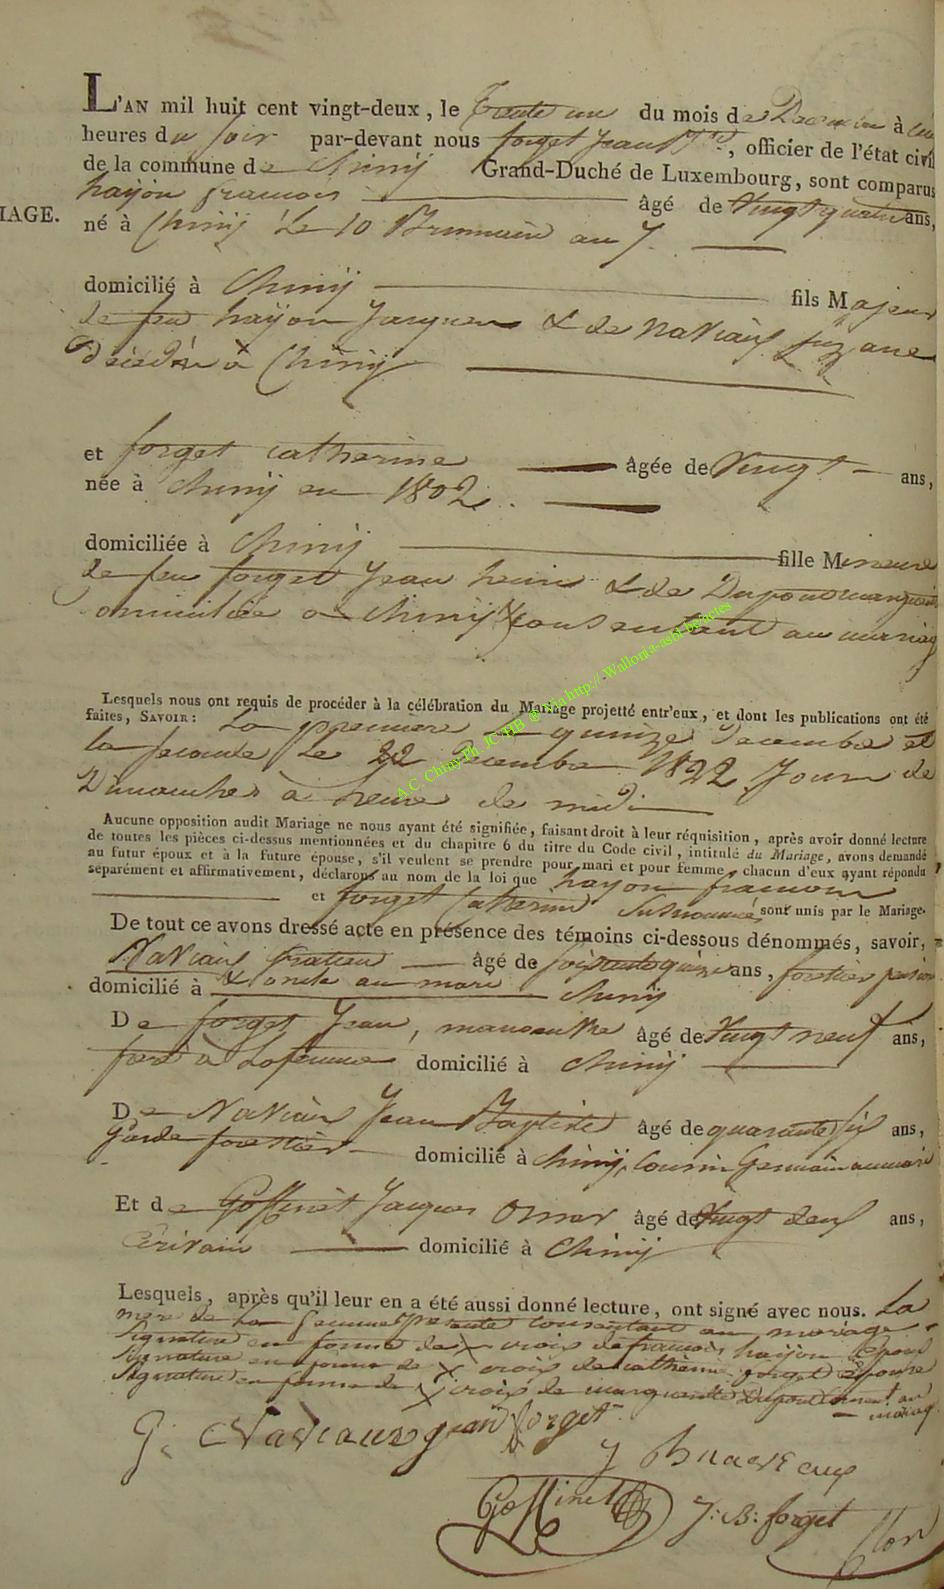 L'AN mil huit cent vingt-deux, le trente un du mois de Decembre à
heures du soir par-devant nous forget Jean Bte, officier de l'état civil
de la commune de Chiny Grand-Duché de Luxembourg, sont comparus
hayon francois âgé de Vingt quatre ans,
IAGE.
né à Chiny le 10 Brumaire an 7
domicilié à Chiny fils Majeur
de feu hayon Jacques & de NaViaux Suzane
décédée à Chiny
et forget catherine âgée de Vingt ans,
née à Chiny en 1802
domiciliée à Chiny fille Mineure
de feu forget Jean henri & de Dupont marguerite
omiciliée a Chiny consentant au mariag
Lesquels nous ont requis de procéder à la célébration du Mariage projetté entr'eux, et dont les publications ont été
faites, SAVOIR: La premiere le quinze Decembre et
la seconde le 22 Decembre 1822 Jour de
Dimanche à heure de midi
A.C. Chiny Ph. JC HB ® via http://Wallonia-asbl.be/actes
Aucune opposition audit Mariage ne nous ayant été signifiée, faisant droit à leur réquisition, après avoir donné lecture
de toutes les pièces ci-dessus mentionnées et du chapitre 6 du titre du Code civil, intitulé du Mariage, avons demandé
au futur époux et à la future épouse, s'il veulent se prendre pour mari et pour femme, chacun d'eux ayant répondu
séparément et affirmativement, déclarons au nom de la loi que hayon francois
et forget Catherine susnommés sont unis par le Mariage.
De tout ce avons dressé acte en présence des témoins ci-dessous dénommés, savoir,
NaViaux âgé de soixante quinze ans, forestier pension
domicilié à & oncle au mari chiny
De forget Jean, manoeuvre âgé de Vingt neuf ans,
à Lafemme domicilié à chiny
De NaViaux Jean Baptiste âgé de quarante six ans,
garde forestier domicilié à chiny, Cousin Germain au mari
Et de Goffinet Jacques Omer âgé de Vingt deux ans,
Ecrivain domicilié à Chiny
Lesquels, après qu'il leur en a été aussi donné lecture, ont signé avec nous. La
mere de La femme presente consentant au mariage.
Signature en forme de X croix de francois hayon Epoux
Signature en forme de X croix de catherine forget Epouse
Signature en forme de X croix de marguerite Dupont consent au
mariag
G: NaViaux jean forget
J B naveaux
Goffinet J: B: forget